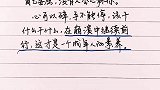 心可以碎，手不能停，该干
什么干什么，在崩溃中继续前
行，这才是一个成年人的素养。